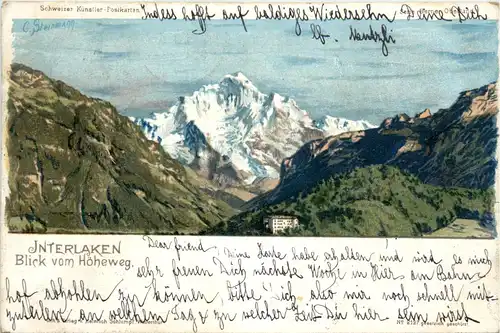 Schweizer Künstler-Postkarten.
C. Steinmann
Indess hofft auf baldiges Wiedersehn Deine Dich
lb.
INTERLAKEN
Blick vom Höheweg.
Dear friend, Deine Karte habe erhalten und wird es mich
sehr freuen Dich nächste Woche in Hier am Bahn-
hof abholen zu können, bitte Dich also mir noch schnell mit-
zuteilen an welchem Tag & zu welcher Zeit Du hier sein wirst
Verlag v. Heinrich Schlumpf, Winterthur
gesetzlich geschützt